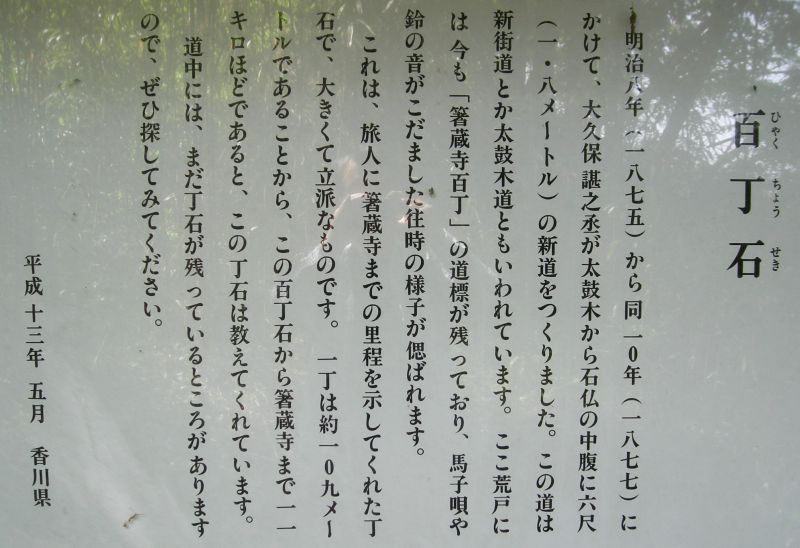 百丁石
ひゃく ちょう せき
明治八年(一八七五)から同一0年(一八七七)に
かけて、大久保諶之丞が太鼓木から石仏の中腹に六尺
(一・八メートル)の新道をつくりました。この道は
新街道とか太鼓木道ともいわれています。ここ荒戸に
は今も「箸蔵寺百丁」の道標が残っており、馬子唄や
鈴の音がこだました往時の様子が偲ばれます。
これは、旅人に箸蔵寺までの里程を示してくれた丁
石で、大きくて立派なものです。一丁は約一0九メー
トルであることから、この百丁石から箸蔵寺まで一一
キロほどであると、この丁石は教えてくれています。
道中には、まだ丁石が残っているところがあります
ので、ぜひ探してみてください。
平成十三年五月 香川県